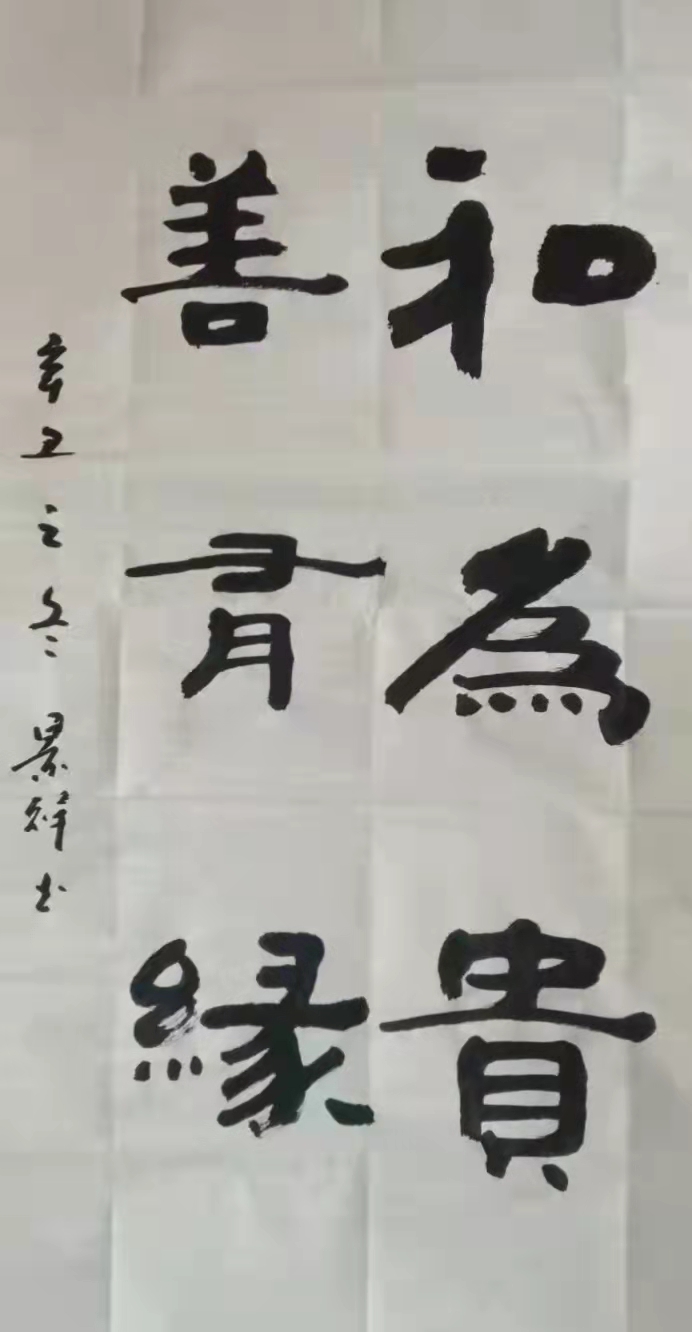 和為貴
善有緣
辛丑之冬景祥书